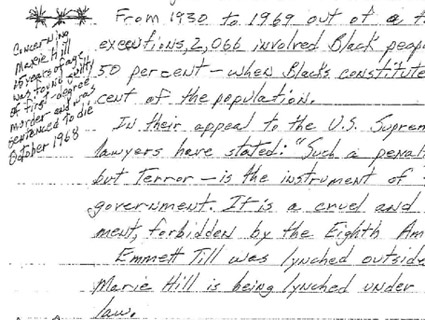 From 1930 to 1969 out of a t
executions, 2,066 involved Black peop
50 percent — when Blacks constitute
cent of the population.
In their appeal to the U.S. Suprem
lawyers have stated: "Such a penal
but Terror — is the instrument of
government. It is a cruel and
ment, forbidden by the Eighth Am
Emmett Till was lynched outside
Marie Hill is being lynched under
law.
Concerning
Marie Hill
15 years of age,
was found guilty
of first-degree
murder and was
sentenced to die
October 1968